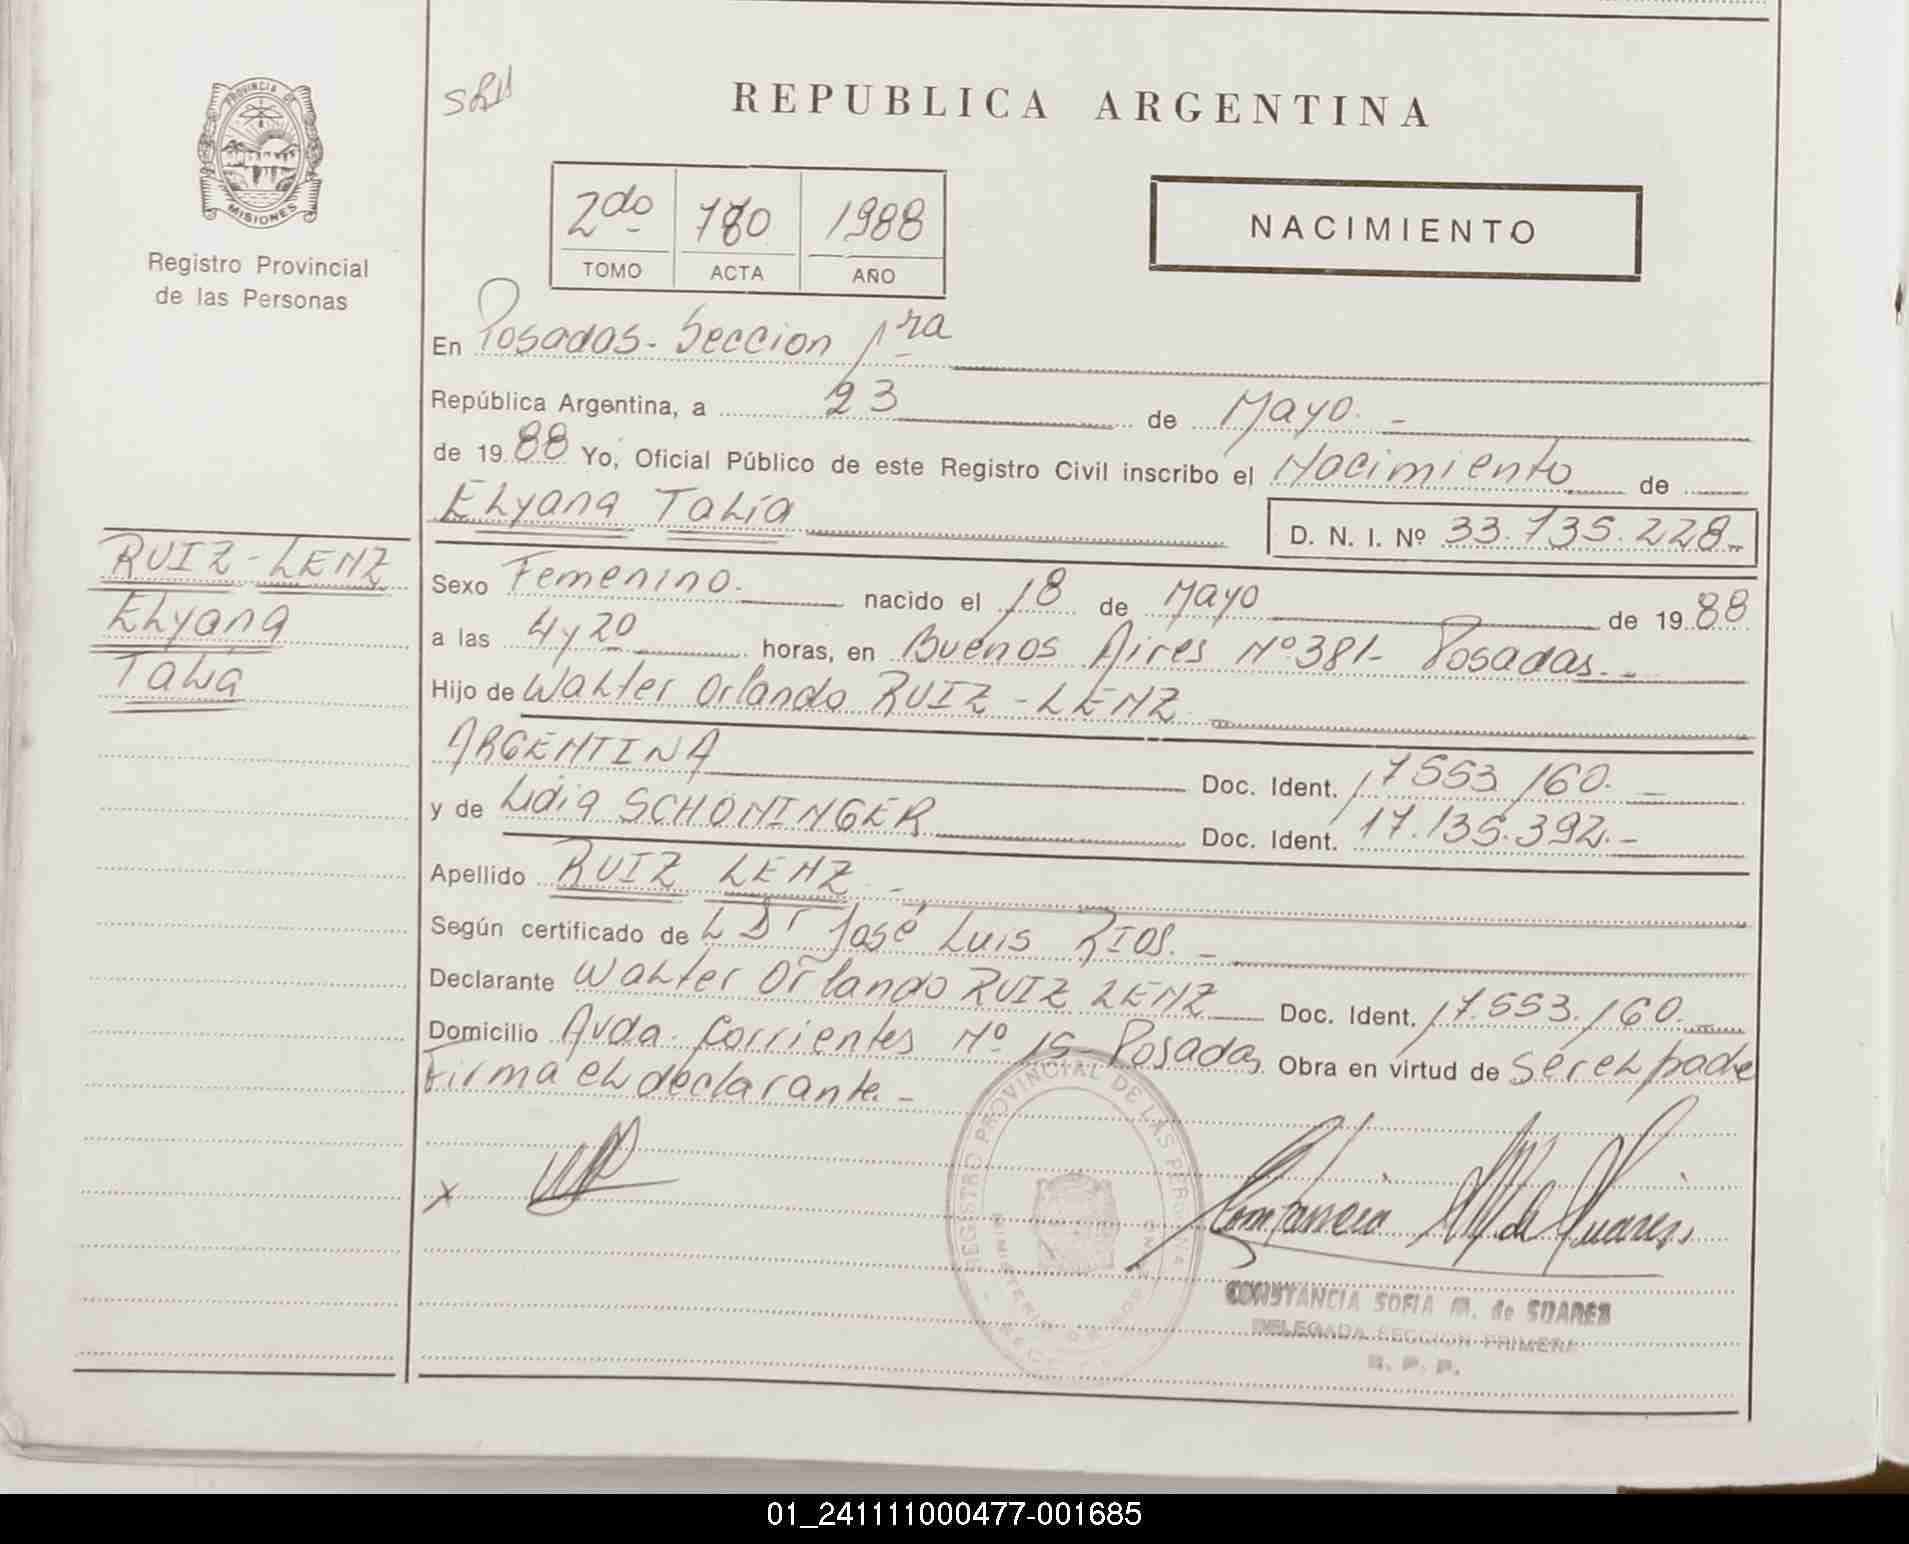 PROVINCIA DE
MISIONES
Registro Provincial
de las Personas
RUIZ-LENZ
Elyana
Talía
SRH
REPUBLICA ARGENTINA
2do 780 1988
TOMO ACTA AÑO
NACIMIENTO
En Posadas- Seccion 1ra
República Argentina, a 23 de Mayo.-
de 1988 Yo, Oficial Público de este Registro Civil inscribo el Nacimiento de
Elyana Talía D. N. I. Nº 33.735.228-
Sexo Femenino.- nacido el 18 de Mayo de 1988
a las 4 y 20 horas, en Buenos Aires Nº 381- Posadas.-
Hijo de Walter Orlando RUIZ-LENZ
ARGENTINA Doc. Ident. 17553160.-
y de Lidia SCHONINGER Doc. Ident. 17.135.392.-
Apellido RUIZ LENZ.-
Según certificado de L Dr José Luis RIOS.-
Declarante Walter Orlando RUIZ LENZ Doc. Ident. 17.553.160.-
Domicilio Avda. Corrientes Nº 15- Posadas Obra en virtud de ser el padre
Firma el declarante.-
x
REGISTRO PROVINCIAL DE LAS PERSONAS
Constancia M. de Suarez
CONSTANCIA SOFIA M. de SUAREZ
DELEGADA SECCION PRIMERA
R. P. P.
01_241111000477-001685